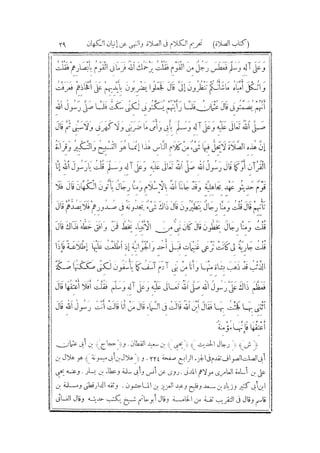 (كتاب الصلاة) تحريم الكلام فى الصلاة والنهى عن إتيان الكهان ٢٩
وعلى آله وسلم فعطس رجل من القوم فقلت يرحمك الله فرمانى القوم بأبصارهم فقلت
واثكل أمياه ماشأنكم تنظرون إلى قال فجعلوا يضربون بأيديهم على أفخاذهم فعرفت
أنهم يصمتونى قال عثمان فلما رأيتهم يسكتونى لكنى سكت فلما صلى رسول الله
صلى الله تعالى عليه وعلى آله وسلم بأبى وأمى ما ضربنى ولا كهرنى ولا سبنى ثم قال
إن هذه الصلاة لا يحل فيها شىء من كلام الناس هذا إنما هو التسبيح والتكبير وقراءة
القرآن أو كما قال رسول الله صلى الله تعالى عليه وعلى آله وسلم قلت يارسول الله إنا
قوم حديثو عهد بجاهلية وقد جاءنا الله بالإسلام ومنا رجال يأتون الكهان قال فلا
تأتهم قال قلت ومنا رجال يتطيرون قال ذاك شىء يجدونه فى صدورهم فلا يصدهم قال
قلت ومنا رجال يخطون قال كان نبى من الأنبياء يخط فمن وافق خطه فذاك قال
قلت جارية لى كانت ترعى غنيمات قبل أحد والجوانية إذ اطلعت عليها إطلاعة فإذا
الذئب قد ذهب بشاة منها وأنا من بنى آدم آسف كما يأسفون لكنى صككتها صكة
فعظم ذاك على رسول الله صلى الله تعالى عليه وعلى آله وسلم فقلت أفلا أعتقها قال
ائتنى بها فجئت بها فقال أين الله قالت فى السماء قال من أنا قالت أنت رسول الله قال
أعتقها فإنها مؤمنة
(ش) (رجال الحديث) (يحيى) بن سعيد القطان. و(حجاج) بن أبى عثمان
ابن أبى الصلت الصواف تقدم فى الجزء الرابع صفحة ٢٢٤. و(هلال بن أبى ميمونة) هو هلال بن
على بن أسامة العامرى مولاهم المدنى. روى عن أنس وأبى سلمة وعطاء بن يسار. وعنه يحيى
ابن أبى كثير وزياد بن سعد وفليح وعبد العزيز بن الماجشون. وثقه الدارقطنى ومسلمة بن
قاسم وقال فى التقريب ثقة من الخامسة وقال أبو حاتم شيخ يكتب حديثه وقال النسائى